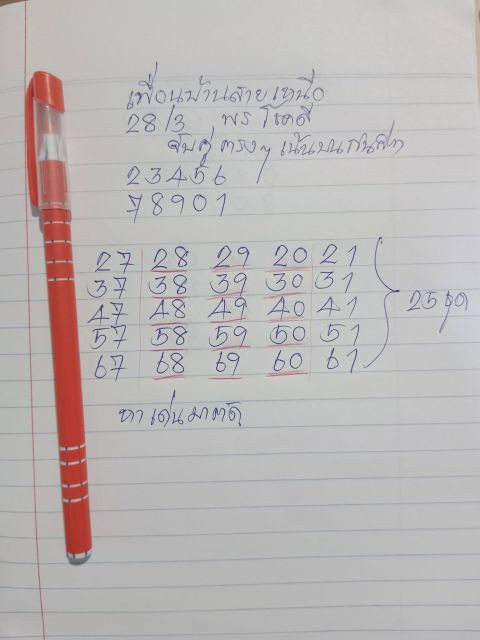 เพื่อนบ้านสายเหนือ
28/3 พร โชคดี
จับคู่ ตรงๆ เน้นบน
23456
78901
27 28 29 20 21
37 38 39 30 31
47 48 49 40 41
57 58 59 50 51
67 68 69 60 61
25 ชุด
หาเด่นมาตัด